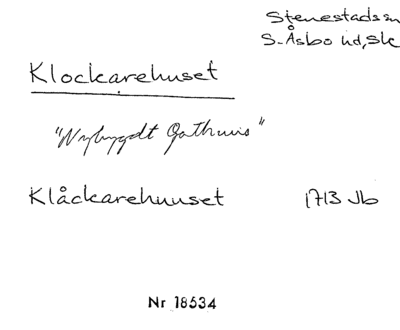 Stenestads sn
S. Åsbo hd, Sk
Klockarehuset
"Nybygdt Gathuus"
Klåckarehuuset 1713 Jb
Nr 18534